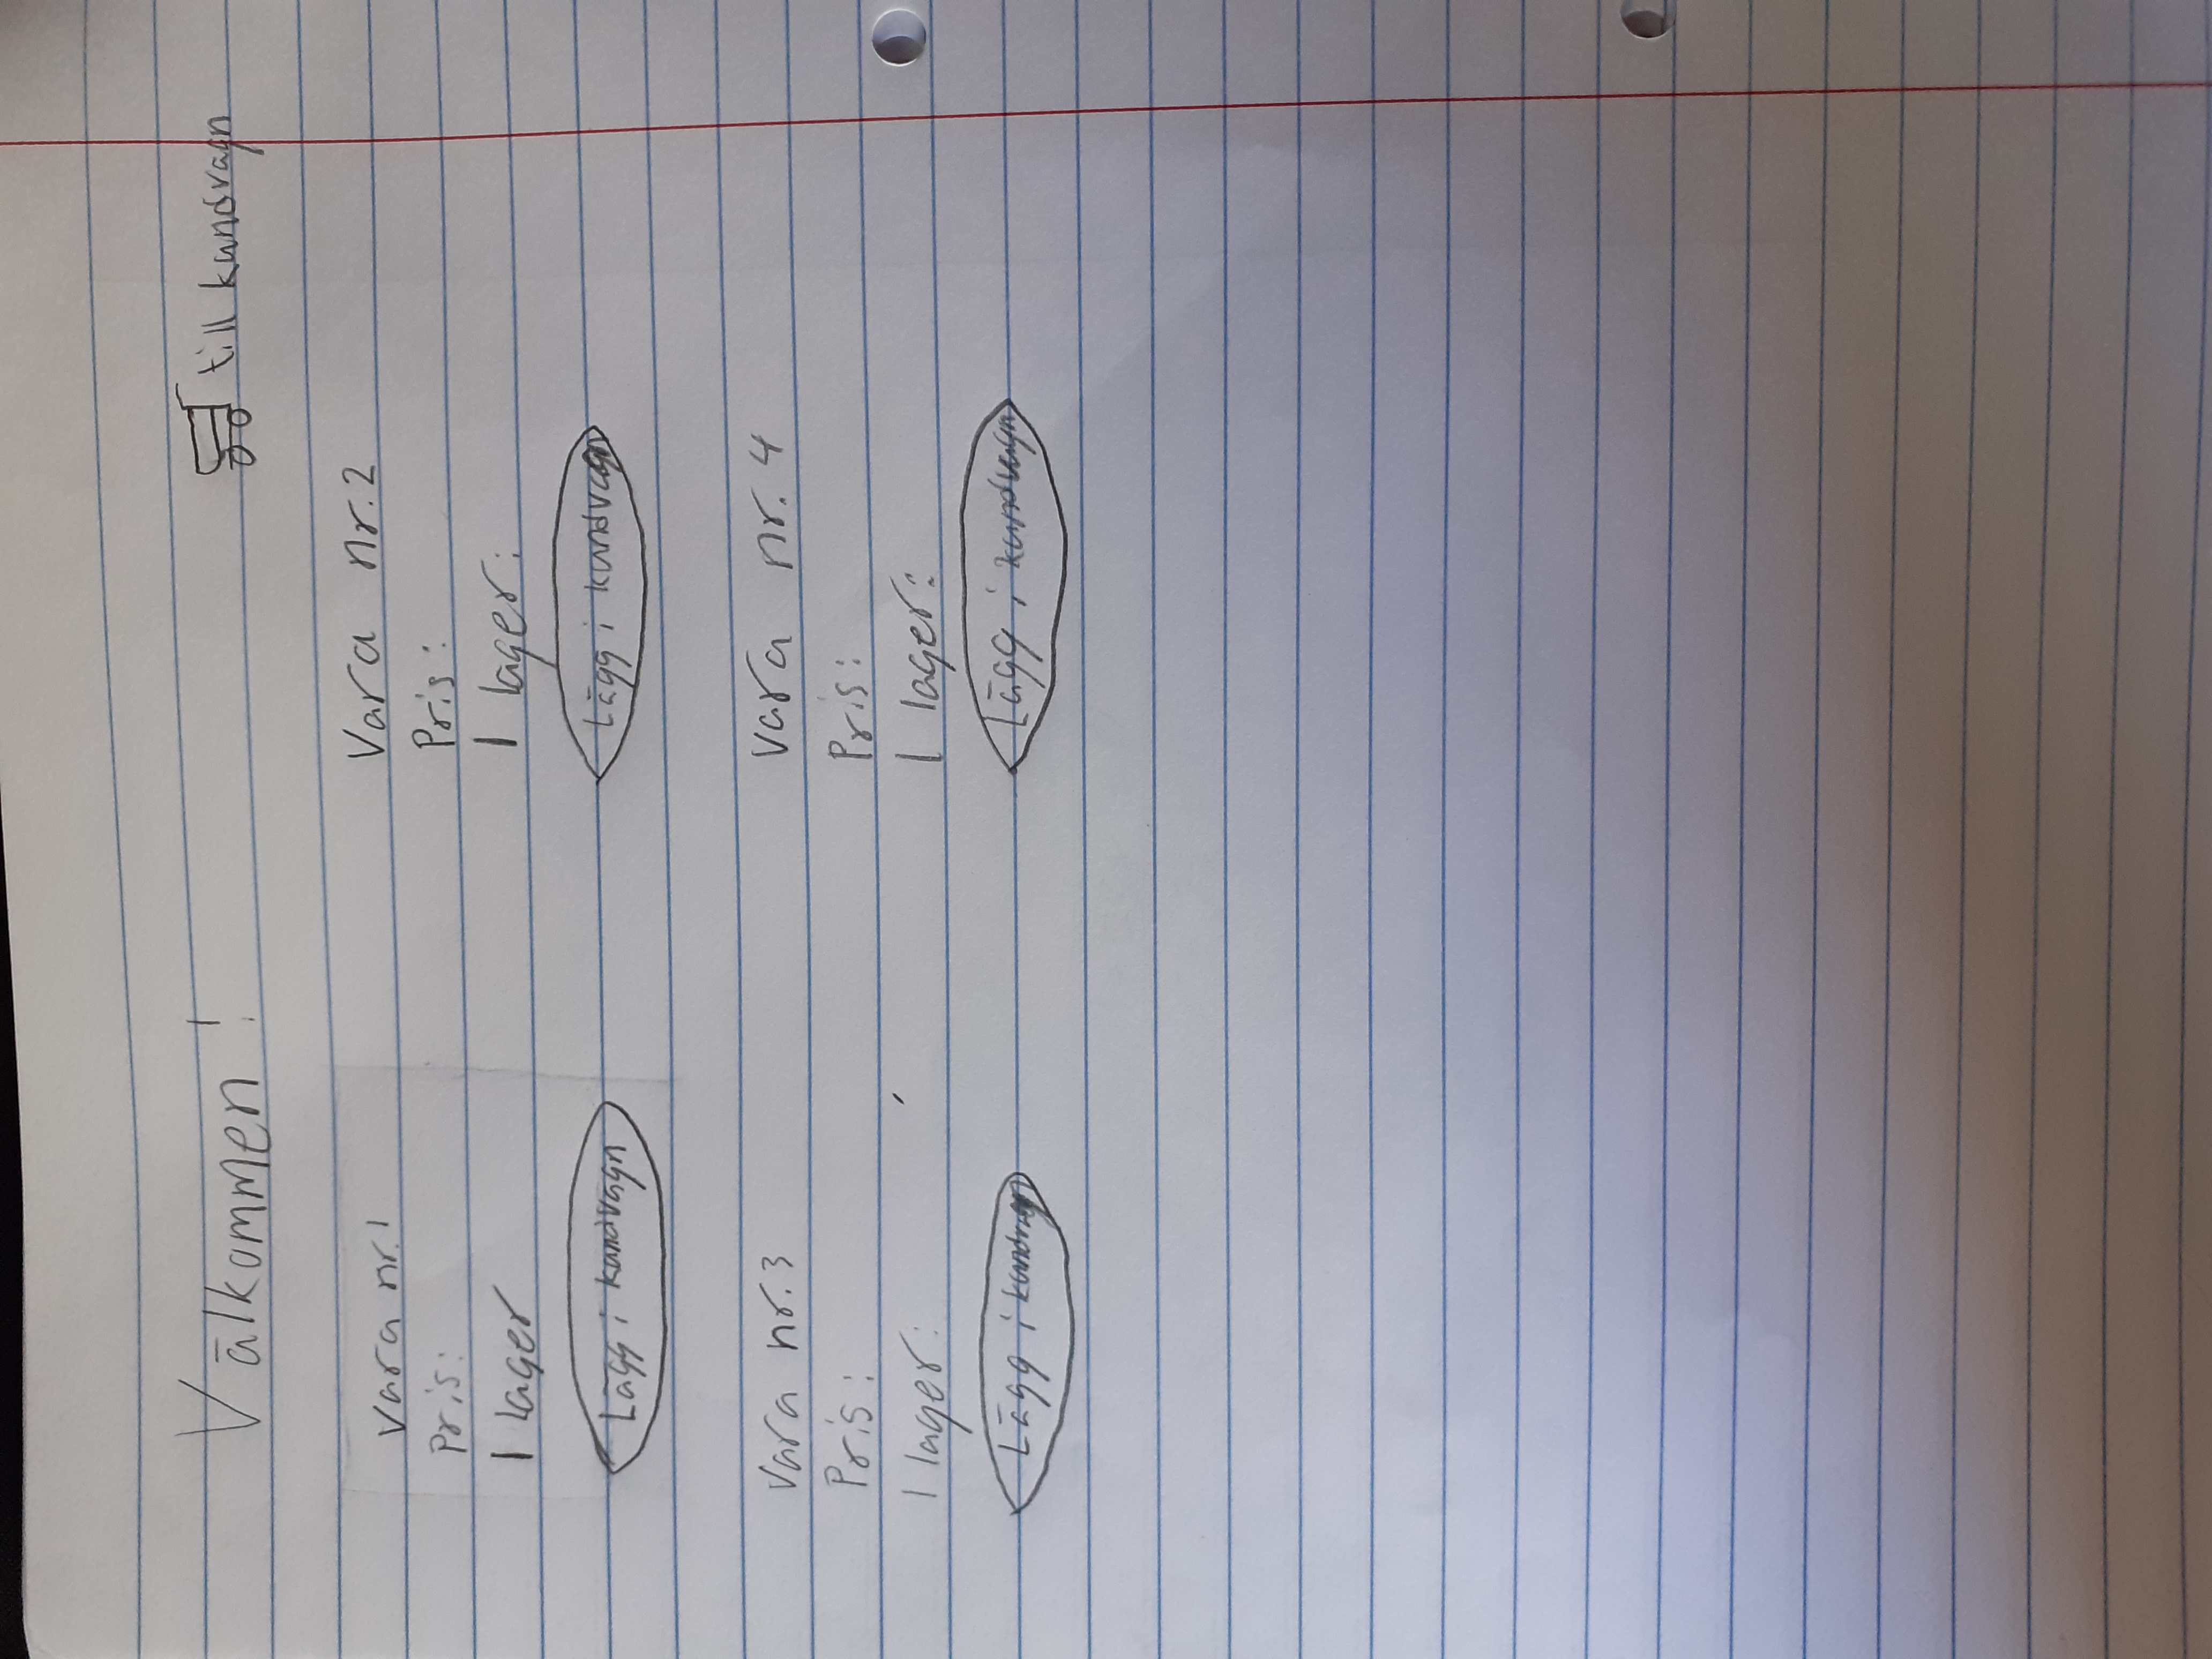 Välkommen!
till kundvagn
Vara nr.1
Pris:
I lager
Lägg i kundvagn
Vara nr.2
Pris:
I lager:
Lägg i kundvagn
Vara nr.3
Pris:
I lager:
Lägg i kundvagn
Vara nr. 4
Pris:
I lager:
Lägg i kundvagn